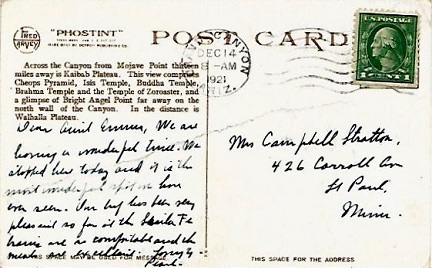 FRED HARVEY
"PHOSTINT"
POST CARD
CANYON
DEC 14
8-AM
1921
ARIZ.
U.S. POSTAGE
1 CENT 1
Across the Canyon from Mojave Point thirteen
miles away is Kaibab Plateau. This view comprises
Cheops Pyramid, Isis Temple, Buddha Temple,
Brahma Temple and the Temple of Zoroaster, and
a glimpse of Bright Angel Point far away on the
north wall of the Canyon. In the distance is
Walhalla Plateau.
Dear Aunt Emma, We are
having a wonderful time. We
stopped here today and it is the
most wonderful spot we have
ever seen. Our trip has been very
pleasant so far & the Santa Fe
trains are so comfortable and the
meals are excellent.
THIS SPACE MAY BE USED FOR MESSAGE
Mrs Campbell Stratton,
426 Carroll Av
St Paul,
Minn.
THIS SPACE FOR THE ADDRESS